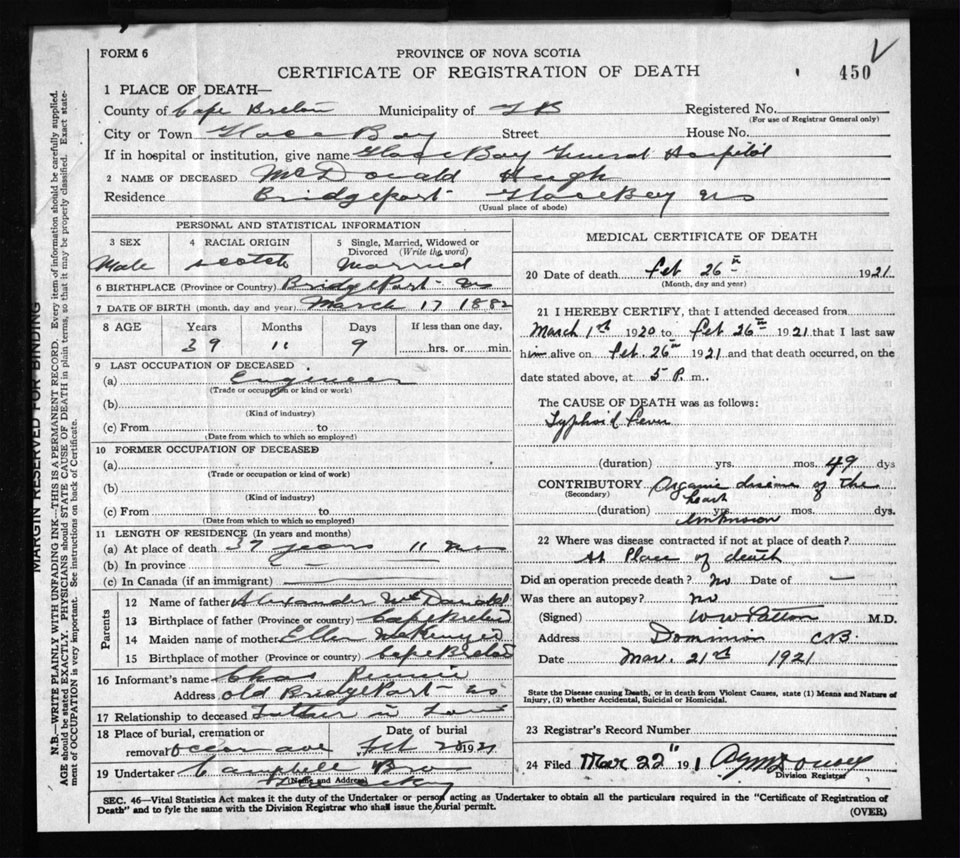 FORM 6
PROVINCE OF NOVA SCOTIA
CERTIFICATE OF REGISTRATION OF DEATH
450
1 PLACE OF DEATH—
County of Cape Breton Municipality of G B Registered No.
(For use of Registrar General only)
City or Town Glace Bay Street House No.
If in hospital or institution, give name Glace Bay General Hospital
2 NAME OF DECEASED McDonald Hugh
Residence Bridgeport Glace Bay NS
(Usual place of abode)
PERSONAL AND STATISTICAL INFORMATION
3 SEX 4 RACIAL ORIGIN 5 Single, Married, Widowed or Divorced (Write the word)
Male Scotch Married
6 BIRTHPLACE (Province or Country) Bridgeport NS
7 DATE OF BIRTH (month, day and year) March 17 1882
8 AGE Years Months Days If less than one day,
39 11 9 hrs. or min.
9 LAST OCCUPATION OF DECEASED
(a) Engineer
(Trade or occupation or kind or work)
(b)
(Kind of industry)
(c) From to
(Date from which to which so employed)
10 FORMER OCCUPATION OF DECEASED
(a)
(Trade or occupation or kind of work)
(b)
(Kind of industry)
(c) From to
(Date from which to which so employed)
11 LENGTH OF RESIDENCE (In years and months)
(a) At place of death 37 years 11
(b) In province
(c) In Canada (if an immigrant)
Parents
12 Name of father Alexander McDonald
13 Birthplace of father (Province or country) Cape Breton
14 Maiden name of mother Ellen McKenzie
15 Birthplace of mother (Province or country) Cape Breton
16 Informant's name Chas Rennie
Address Old Bridgeport NS
17 Relationship to deceased Father in Law
18 Place of burial, cremation or removal Ocean ave Date of burial Feb 28 1921
19 Undertaker Campbell Bro
(Name and Address) Glace Bay
MEDICAL CERTIFICATE OF DEATH
20 Date of death Feb 26th 1921
(Month, day and year)
21 I HEREBY CERTIFY, that I attended deceased from
March 1st 1920 to Feb 26th 1921 that I last saw
him alive on Feb. 26th 1921 and that death occurred, on the
date stated above, at 5 P. m.
The CAUSE OF DEATH was as follows:
Typhoid Fever
(duration) yrs. mos. 49 dys
CONTRIBUTORY Organic disease of the
(Secondary) heart
(duration) yrs. mos. dys.
22 Where was disease contracted if not at place of death?
At Place of death
Did an operation precede death? No Date of —
Was there an autopsy? No
(Signed) W W Patton M.D.
Address Dominion C.B.
Date Mar. 21st 1921
State the Disease causing Death, or in death from Violent Causes, state (1) Means and Nature of
Injury, (2) whether Accidental, Suicidal or Homicidal.
23 Registrar's Record Number
24 Filed Mar 22" 191
Division Registrar
SEC. 46—Vital Statistics Act makes it the duty of the Undertaker or person acting as Undertaker to obtain all the particulars required in the "Certificate of Registration of
Death" and to fyle the same with the Division Registrar who shall issue the burial permit.
(OVER)
MARGIN RESERVED FOR BINDING
N.B.—WRITE PLAINLY WITH UNFADING INK—THIS IS A PERMANENT RECORD. Every item of information should be carefully supplied.
AGE should be stated EXACTLY. PHYSICIANS should STATE CAUSE OF DEATH in plain terms, so that it may be properly classified. Exact state-
ment of OCCUPATION is very important. See instructions on back of Certificate.